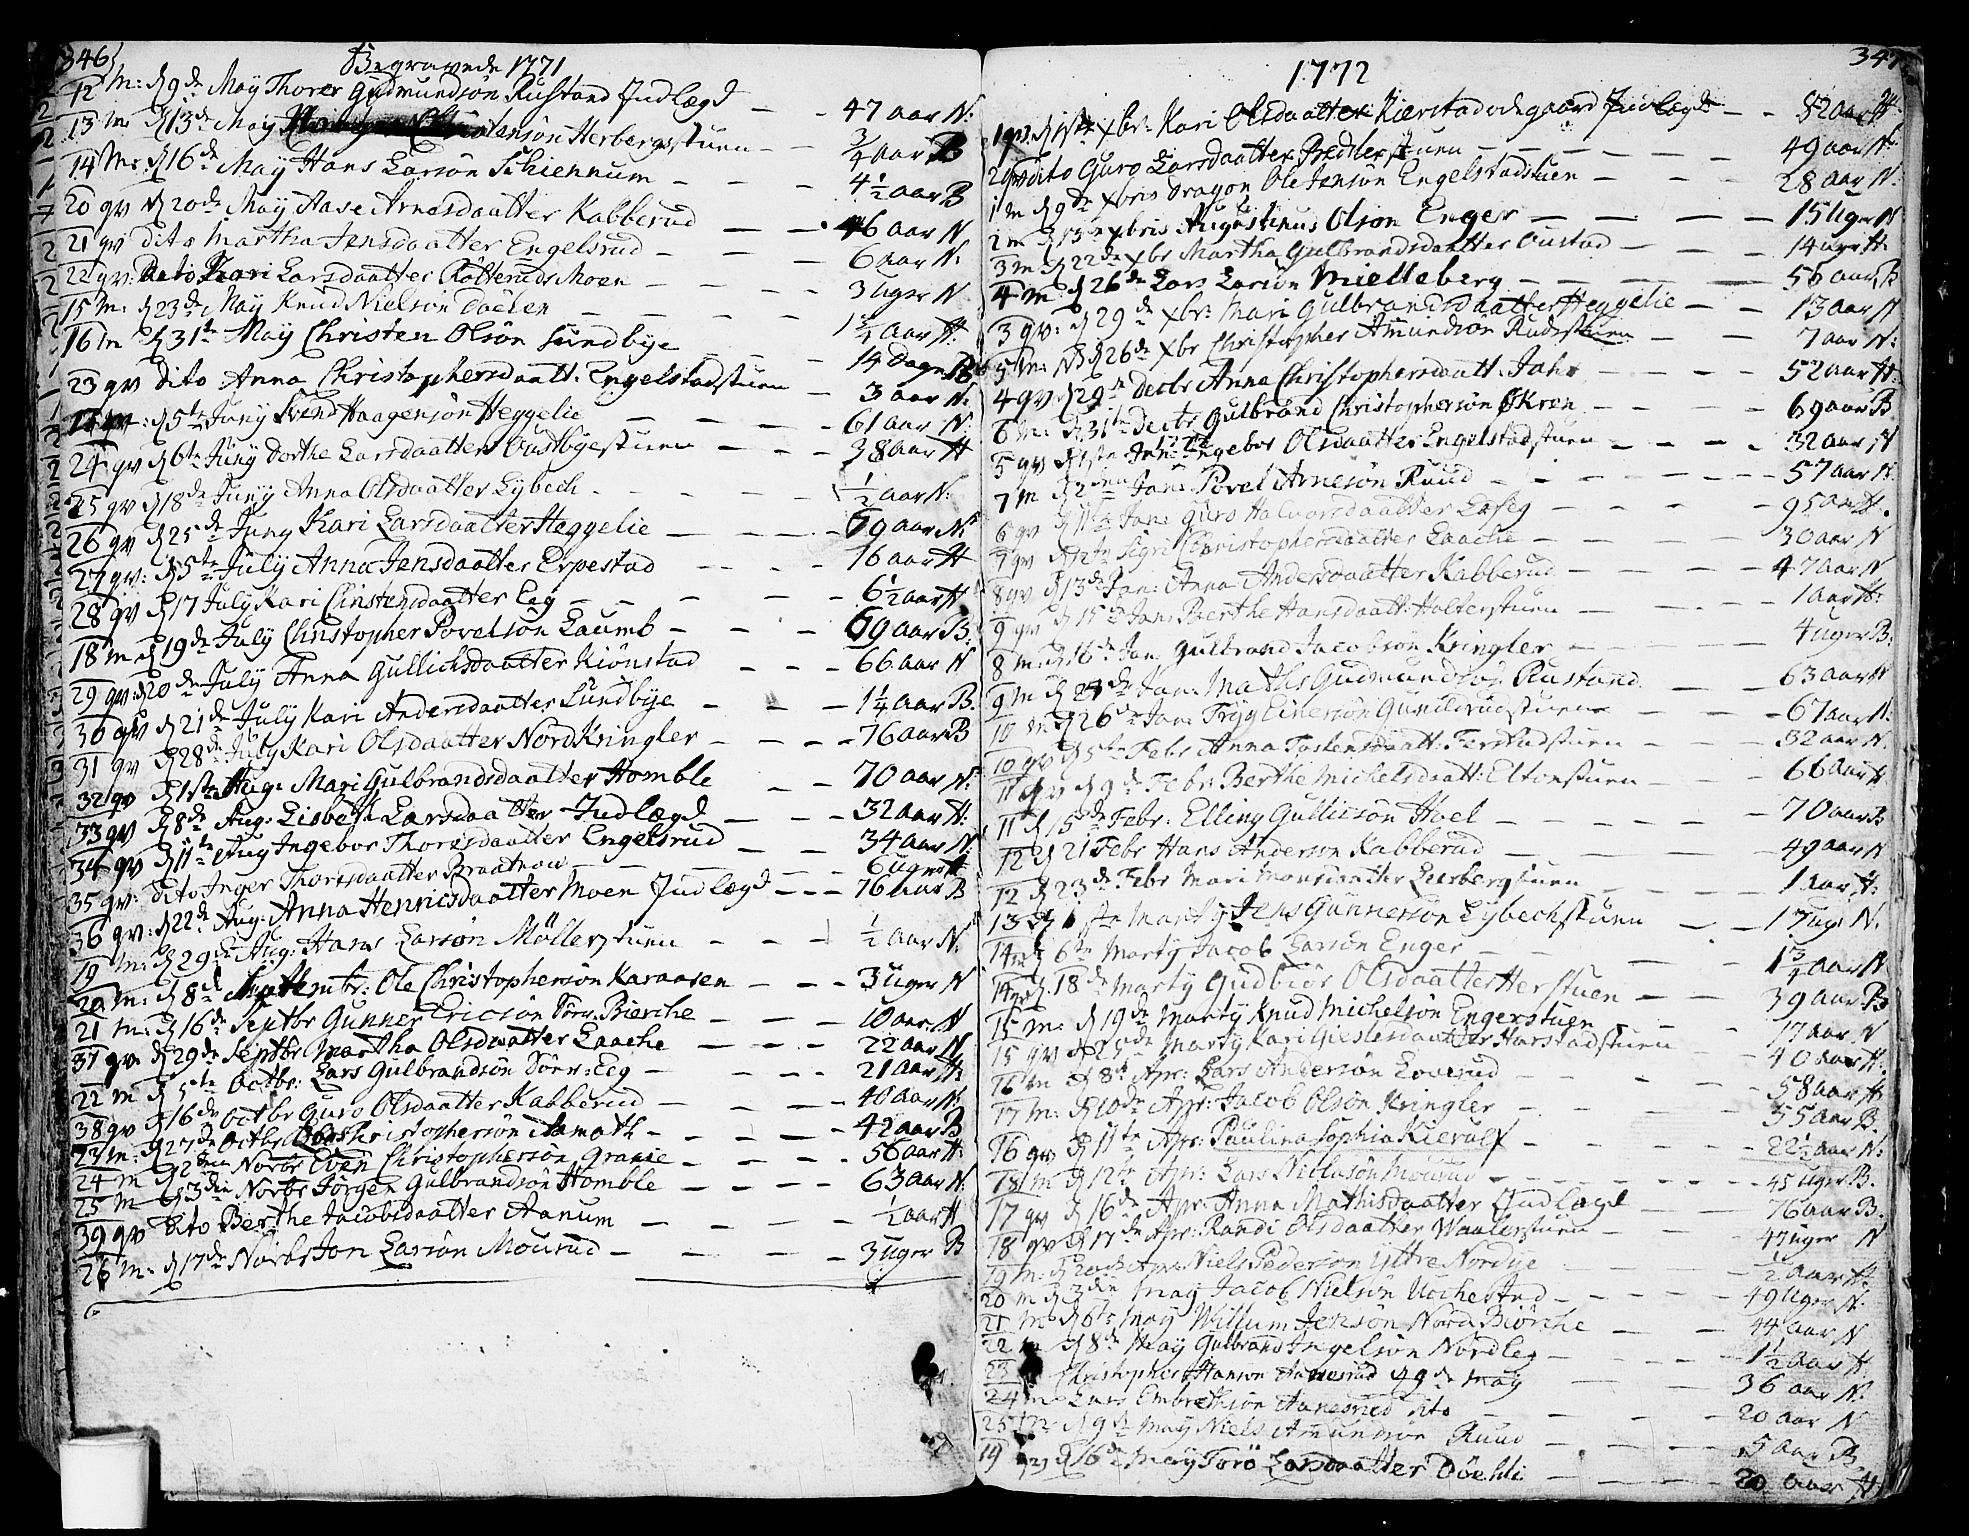 346
Begravede 1771
12 m: d 9de May Thorer Gudmundsön Rustand Indlægd — 47 aar N:
13 m d 13de May Christensön Herbergsstuen — 3/4 aar B
14 m: d 16de May Hans Larsön Schiennum — 4 1/2 aar B
20 qv d 20de May Aase Arnesdaatter Kabberud — 46 aar N
21 qv dito Martha Jensdaatter Engelsrud — 6 aar N:
22 qv: dito Kari Larsdaatter Rötteruds Moen — 3 Uger N
15 m: d 23de May Knud Nielsön Daelen — 1 1/4 aar H:
16 m d 31te May Christen Olsön Sundbye — 14 Dage B
23 qv dito Anna Christophersdaatt: Engelstadstuen — 3 aar N:
17 d 5te Juny Svend Haagensön Heggelie — 61 aar N:
24 qv d 6te Juny Dorthe Larsdaatter Oustbyestuen — 38 aar H
25 qv d 18de Juny Anna Olsdaatter Lybech — 1/2 aar N:
26 qv d 25de Juny Kari Larsdaatter Heggelie — 69 aar N:
27 qv: d 5te July Anna Jensdaatter Erpestad — 76 aar H
28 qv d 17 July Kari Christensdaatter Eeg — 6 1/2 aar H
18 m d 19de July Christopher Povelsön Laumb — 69 aar B:
29 qv: d 20de July Anna Gullichsdaatter Kiönstad — 66 aar N
30 qv d 21de July Kari Andersdaatter Sundbye — 1 1/4 aar B.
31 qv d 28de July Kari Olsdaatter Nord Kringler — 76 aar B
32 qv d 1ste Aug: Mari Gulbrandsdaatter Homble — 70 aar N:
33 qv d 8de Aug: Lisbeth Larsdaatter Indlægd — 32 aar H:
34 qv d 11te Aug Ingebor Thoresdaatter Engelsrud — 34 aar N:
35 qv: dito Inger Thoresdaatter Braatnau — 6 Uger H
36 qv: d 22de Aug: Anna Henricsdaatter Moen Indlægd — 76 aar B
19 m: d 29de Aug: Hans Larsön Möllerstuen — 1/2 aar N:
20 m: d 8de Septembr: Ole Christophersön Karaasen — 3 Uger N
21 m: d 16de Septbr Gunner Ericsön Sörv: Bierche — 10 aar N
37 qv d 29de Septbr Martha Olsdaatter Laache — 22 aar N
22 m d 5te Octbr: Lars Gulbrandsön Sönr: Eeg — 21 aar H:
38 qv d 16de Octbr Guro Olsdaatter Kabberud — 40 aar N:
23 m: d 27de Octbr Christophersön Aamoth — 42 aar B
24 m d 2den Novbr Even Christophersön Granne — 56 aar H:
25 m d 3die Novbr Jörgen Gulbrandsön Homble — 63 aar N:
39 qv dito Berthe Jacobsdaatter Aanum — 1/2 aar H
26 m: d 17de Novbr Jon Larsön Mourud — 3 Uger B
347
1772
1 qv d 1ste xbr: Kari Olsdaatter Kierstadødegaard Indlægd — 82 aar H
2 qv dito Guro Larsdaatter Bedtlerstuen — 49 aar N
1 m d 9de xbris Dragon Ole Jensön Engelstadstuen — 28 aar N:
2 m d 15de xbris Augustinus Olsön Enger — 15 Uger N
3 m d 22de xbr Martha Gulbrandsdaatter Oustad — 14 uger H
4 m: d 26de Lars Larsön Mielleberg — 56 aar B
3 qv: d 29de xbr: Mari Gulbrandsdaatter Heggelie — 13 aar N
5 m: d 26de xbr Christopher Amundsön Rudsstuen — 7 aar N:
4 qv d 29de decbr Anna Christophersdaatt: Jahr — 52 aar H:
6 m: d 31te decbr Gulbrand Christophersön Økren — 69 aar B
1772
5 qv d 1ste Jan: Ingebor Olsdaatter Engelstadstuen — 32 aar N
7 m d 2den Jan: Povel Arnesön Ruud — 57 aar N.
6 qv d 11te Jan: Guro Halvorsdaatter — 95 aar H.
7 qv d 12te Sigri Christophersdaatter Laache — 30 aar N
8 qv d 13de Jan: Anna Andersdaatter Kabberud — 47 aar N
9 qv d 15de Jan: Berthe Hansdaatt: Holterstuen — 1 aar H:
8 m: d 16de Jan Gulbrand Jacobsön Kringler — 4 uger B:
9 m d 24de Jan: Mathis Gudmundsön Rustand — 63 aar N
10 m d 26de Jan: Tryg Einersön Gunderudstuen — 67 aar N:
10 qv d 5te Febr Anna Tostensdaatt: Ferstadstuen — 32 aar N.
11 qv d 9de Febr: Berthe Michelsdaatt: Eltonstuen — 66 aar H
11 d 15de Febr: Elling Gullicsön Hoel — 70 aar B
12 d 21 Febr Hans Anderson Kabberud — 49 aar N
12 d 23de Febr Mari Monsdaatter Leerbergstuen — 1 aar H:
13 d 1ste Marty Jens Gunnersön Lybechstuen — 17 Ug: N.
14 m d 6te Marty Jacob Larsön Enger — 1 3/4 aar N
14 qv d. 18de Marty Gudbiör Olsdaatter Herstuen — 39 aar B
15 m: d 19de Marty Knud Michelsön Engerstuen — 17 aar N
15 qv d 25de Marty Kari Gieslesdaatter Harstadstuen — 40 aar H.
16 m d 8de Apr: Lars Andersön Loverud — 58 aar H
17 m: d 10de Apr: Jacob Olsön Kringler — 55 aar B.
16 qv d 11te Apr: Paulina Sophia Kierulf — 22 1/2 aar N:
18 m d 12te Apr: Lars Nielssön Mourud — 45 Uger B.
17 qv d 16de Apr: Anna Mathisdaatter Indlægd — 76 aar B.
18 qv d 17de Apr: Randi Olsdaatter Waalerstuen — 47 uger N
19 m: d 20de Apr: Niels Pedersön Yttre Nordye — 2 aar H:
20 m d 3die May Jacob Nielsön Uochestad — 49 Uger H:
21 m d 6te May Willum Jensön Nord Biörche — 44 aar N
22 m d 8de May Gulbrand Ingelsön Nord Eeg — 1 1/2 aar H
23 Christopher Hanson Aanerud d 9de May — 36 aar N:
24 m Lars Embrethsön Aanesrud dito — 20 aar N
25 m d 9de May Niels Amundsön Ruud — 5 aar B
19 qv d 16de May Torö Larsdaatter Döehli — 20 aar H: